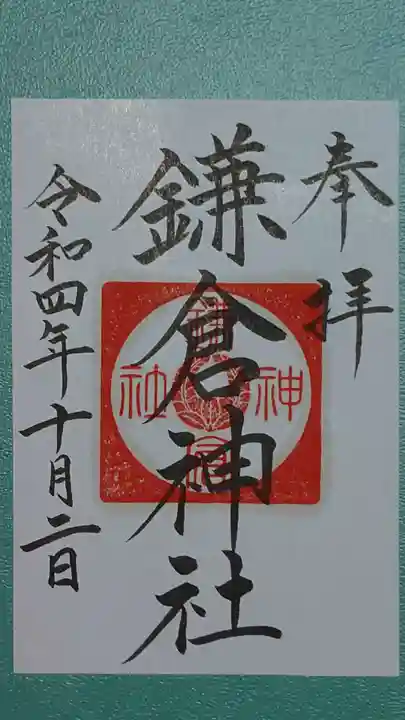 奉拝
鎌倉神社
鎌倉神社
令和四年十月二日